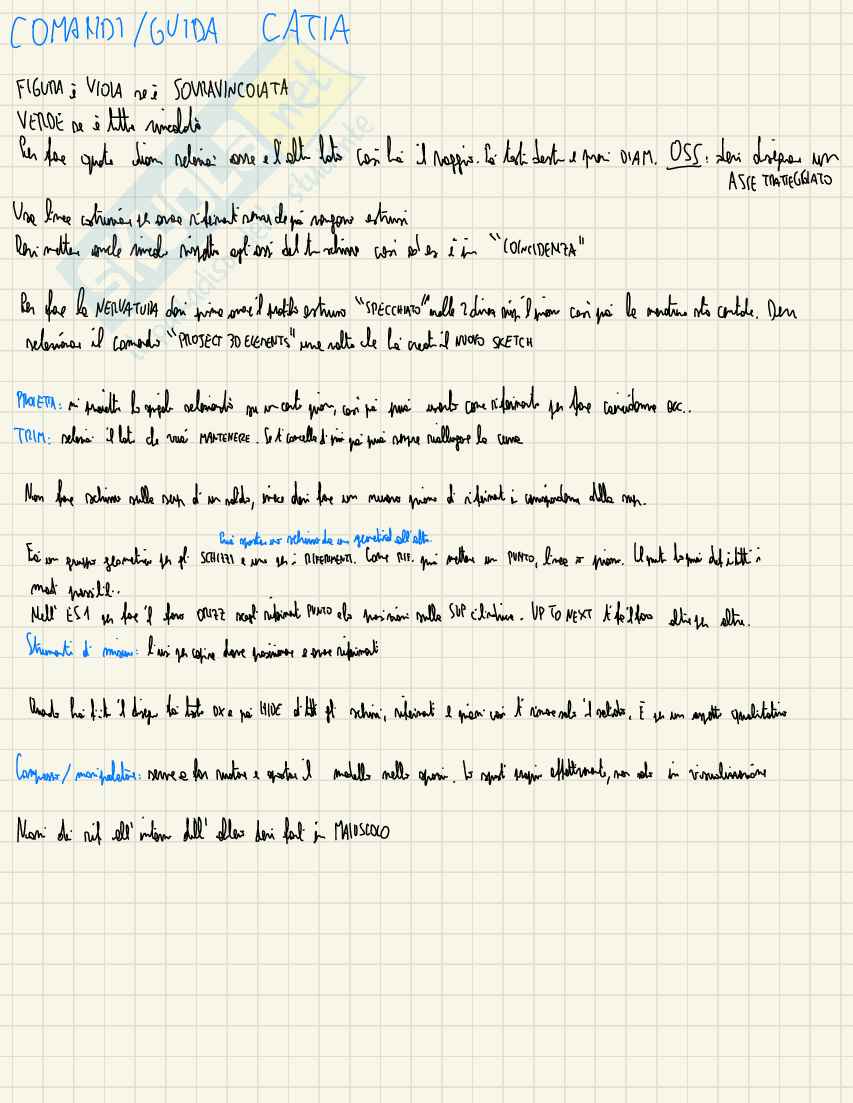 COMANDI/GUIDA CATIA
FIGURA è VIOLA se è SOVRAVINCOLATA
VERDE se è tutto vincolato
Per fare quota diam selezioni asse e l'altro lato così hai il raggio. Fai tasto destro e premi DIAM. OSS: devi disegnare un
ASSE TRATTEGGIATO
Usa linee costruzione per avere riferimenti senza che poi vengano estrusi
Devi mettere anche vincolo rispetto agli assi del tuo schizzo così ad es è in "COINCIDENZA"
Per fare la NERVATURA devi prima avere il profilo estruso "SPECCHIATO" nelle 2 direz risp il piano così poi la mezzeria sta centrale. Devi
selezionare il comando "PROJECT 3D ELEMENTS" una volta che hai creato il NUOVO SKETCH
PROIETTA: mi proietta lo spigolo selezionato su un certo piano, così poi puoi usarlo come riferimento per fare coincidenze ecc..
TRIM: selezioni il lato che vuoi MANTENERE. Se ti cancella di più poi puoi sempre riallungare la curva
Non fare schizzo sulla sup di un solido, invece devi fare un nuovo piano di riferimento in corrispondenza della sup.
Puoi spostare uno schizzo da un geometrical all'altro
Fai un gruppo geometrico per gli SCHIZZI e uno per i RIFERIMENTI. Come RIF. puoi mettere un PUNTO, linea o piano. Il punto lo puoi def in tutti i
modi possibili..
Nell' ES1 per fare il foro ORIZZ scegli riferimento PUNTO e lo posizioni sulla SUP cilindrica. UP TO NEXT ti fa il foro oltre per oltre.
Strumenti di misura: li usi per capire dove posizionare e avere riferimenti
Quando hai finito il disegno fai tasto DX e poi HIDE di tutti gli schizzi, riferimenti e piani così ti rimane solo il solido. È per un aspetto qualitativo
Compasso/manipolatore: serve a far ruotare e spostare il modello nello spazio. Lo sposti proprio effettivamente, non solo in visualizzazione
Nomi dei rif all'interno dell'albero devi farli in MAIUSCOLO